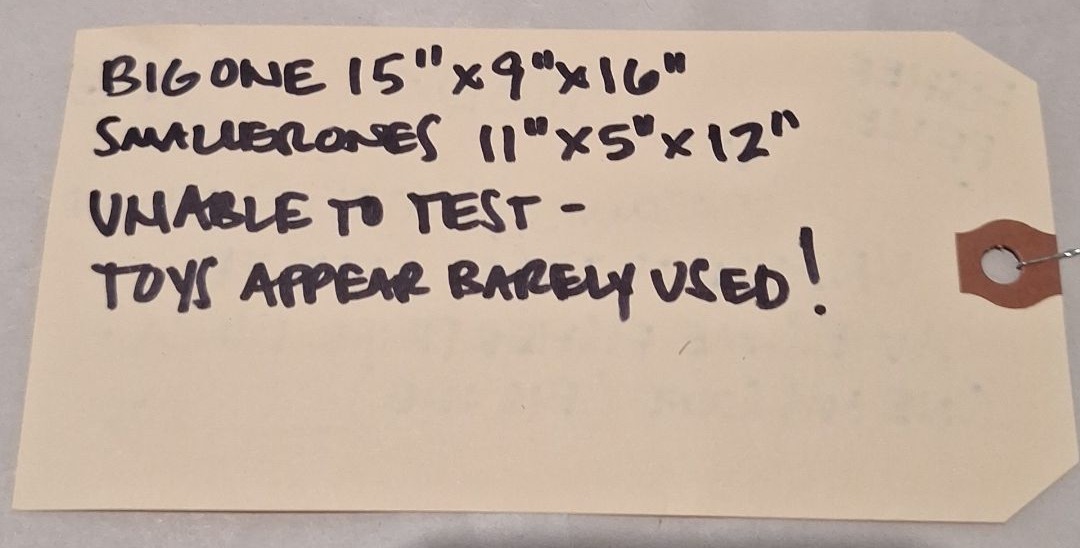 BIG ONE 15"x9"x16"
SMALLER ONES 11"x5"x12"
UNABLE TO TEST -
TOYS APPEAR BARELY USED!